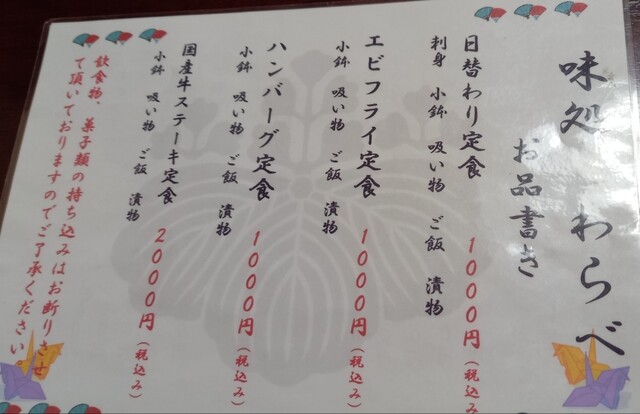 味処 わらべ
お品書き
日替わり定食 1000円(税込み)
刺身 小鉢 吸い物 ご飯 漬物
エビフライ定食 1000円(税込み)
小鉢 吸い物 ご飯 漬物
ハンバーグ定食 1000円(税込み)
小鉢 吸い物 ご飯 漬物
国産牛ステーキ定食 2000円(税込み)
小鉢 吸い物 ご飯 漬物
飲食物、菓子類の持ち込みはお断りさせ
て頂いておりますのでご了承ください。